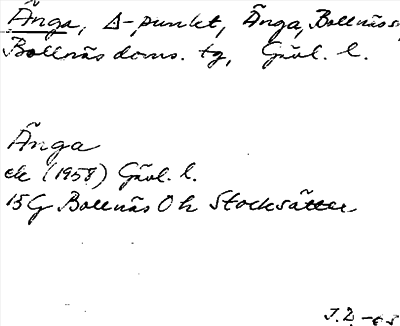 Änga, Δ-punkt, Änga, Bollnäs s,
Bollnäs doms. tg, Gävl. l.
Änga
ek (1958) Gävl. l.
15G Bollnäs Oh Stocksätter
J.D. -63